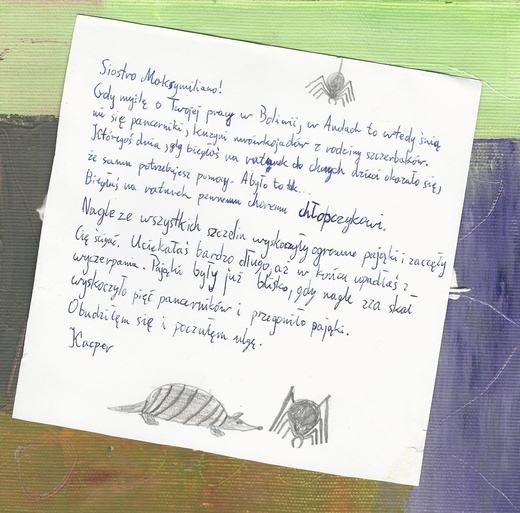 Siostro Maksymiliano!
Gdy myślę o Twojej pracy w Boliwii, w Andach to wtedy śnią
mi się pancerniki, kuzyni mrówkojadów z rodziny szczerbaków.
Któregoś dnia, gdy biegłaś na ratunek do chorych dzieci okazało się,
że sama potrzebujesz pomocy. A było to tak...
Biegłaś na ratunek pewnemu choremu chłopczykowi.
Nagle ze wszystkich szczelin wyskoczyły ogromne pająki i zaczęły
Cię ścigać. Uciekałaś bardzo długo, aż w końcu upadłaś z
wyczerpania. Pająki były już blisko, gdy nagle zza skał
wyskoczyło pięć pancerników i przegoniło pająki.
Obudziłem się i poczułem ulgę.
Kacper